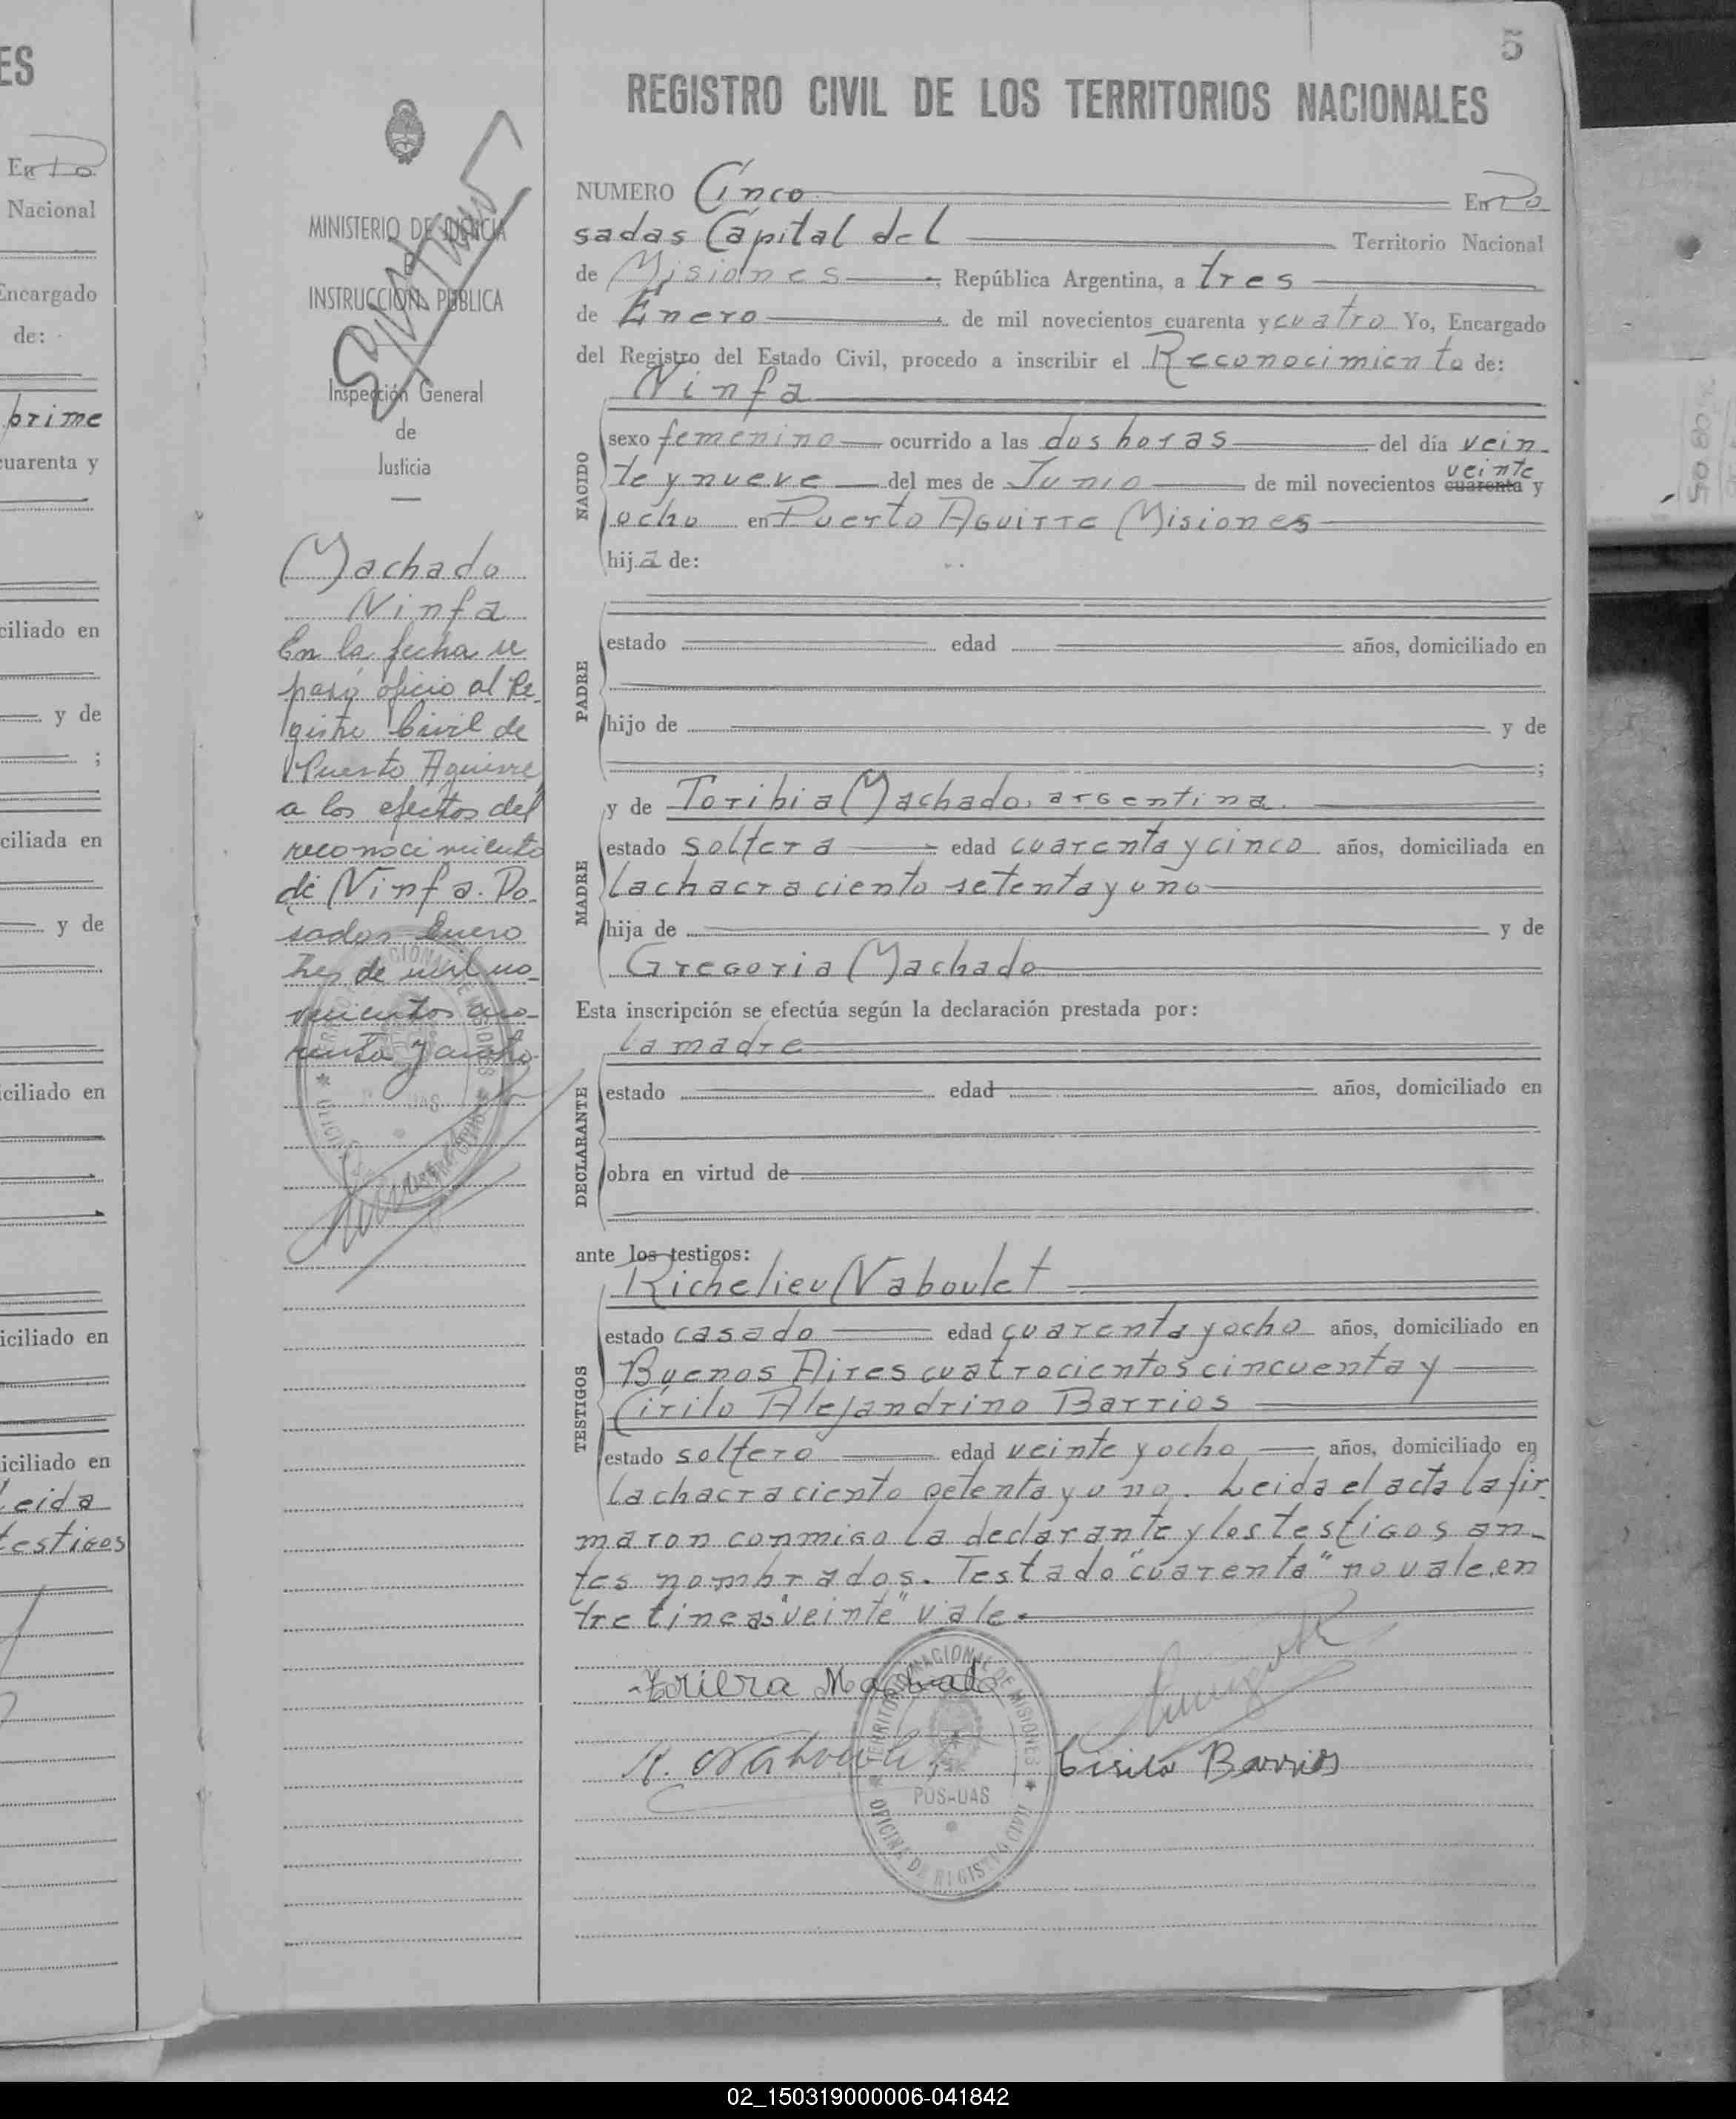 ES
En Po
Nacional
Encargado
de:
prime
cuarenta y
ciliado en
y de
;
ciliada en
y de
iciliado en
iciliado en
iciliado en
Leida
testigos
5
MINISTERIO DE JUSTICIA
E
INSTRUCCION PUBLICA
Inspección General
de
Justicia
Machado
Ninfa
En la fecha se
pasó oficio al Re-
gistro Civil de
Puerto Aguirre,
a los efectos del
reconocimiento
de Ninfa. Po-
sadas Enero
tres de mil no-
vecientos cua-
renta y cuatro.
REGISTRO CIVIL DE LOS TERRITORIOS NACIONALES
NUMERO Cinco En Po
sadas Capital del Territorio Nacional
de Misiones, República Argentina, a tres
de Enero de mil novecientos cuarenta y cuatro Yo, Encargado
del Registro del Estado Civil, procedo a inscribir el Reconocimiento de:
NACIDO
Ninfa
sexo femenino ocurrido a las dos horas del día vein-
te y nueve del mes de Junio de mil novecientos cuarenta veinte y
ocho en Puerto Aguirre Misiones
hija de:
PADRE
estado edad años, domiciliado en
hijo de y de
;
MADRE
y de Toribia Machado, argentina.
estado soltera edad cuarenta y cinco años, domiciliada en
la chacra ciento setenta y uno
hija de y de
Gregoria Machado
Esta inscripción se efectúa según la declaración prestada por:
DECLARANTE
la madre
estado edad años, domiciliado en
obra en virtud de
ante los testigos:
TESTIGOS
Richelieu Naboulet
estado casado edad cuarenta y ocho años, domiciliado en
Buenos Aires cuatrocientos cincuenta y
Cirilo Alejandrino Barrios
estado soltero edad veinte y ocho años, domiciliado en
la chacra ciento setenta y uno. Leida el acta la fir-
maron conmigo la declarante y los testigos an-
tes nombrados. Testado "cuarenta" no vale, en
tre lineas "veinte" vale.
Machado
Cirilo Barrios
TERRITORIO NACIONAL DE MISIONES
POSADAS
OFICINA DE REGISTRO CIVIL
02_150319000006-041842